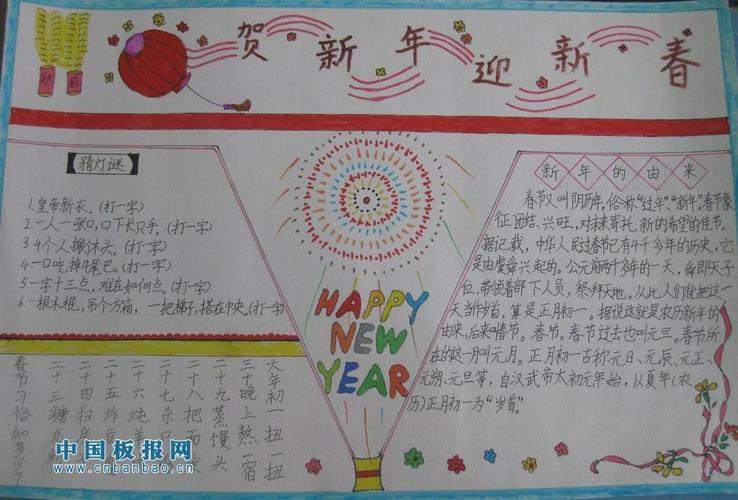 贺新年迎新春
猜灯谜
1.皇帝新衣。(打一字)
2.一人一张口,口下长只手。(打一字)
3.4个人搬木头。(打一字)
4.一口吃掉牛尾巴。(打一字)
5.一字十三点,难在如何点。(打一字)
6.一根木棍,吊个方箱,一把梯子,搭在中央。(打一字)
HAPPY
NEW
YEAR
新年的由来
春节又叫阴历年,俗称“过年”“新年”春节象
征团结、兴旺,对未来寄托,新的希望的佳节。
据记载,中华人民过春节已有4千多年的历史,它
是由虞舜兴起的。公元前两千多年的一天,舜即天子
位,带领着部下人员,祭拜天地。从此人们就把这一
天当作岁首,算是正月初一。据说这就是农历新年的
由来,后来叫春节。春节。春节过去也叫元旦。春节所
在的这一月叫元月。正月初一古称元日、元辰、元正、
元朔、元旦等,自汉武帝太初元年始,以夏年(农
历)正月初一为“岁首”。
大年初一扭一扭
三十晚上熬一宿
二十九蒸馒头
二十八把面
二十七杀
二十六炖
二十五炸
二十四扫房
二十三糖
春节习俗知多少?
中国板报网
www.cnbanbao.cn